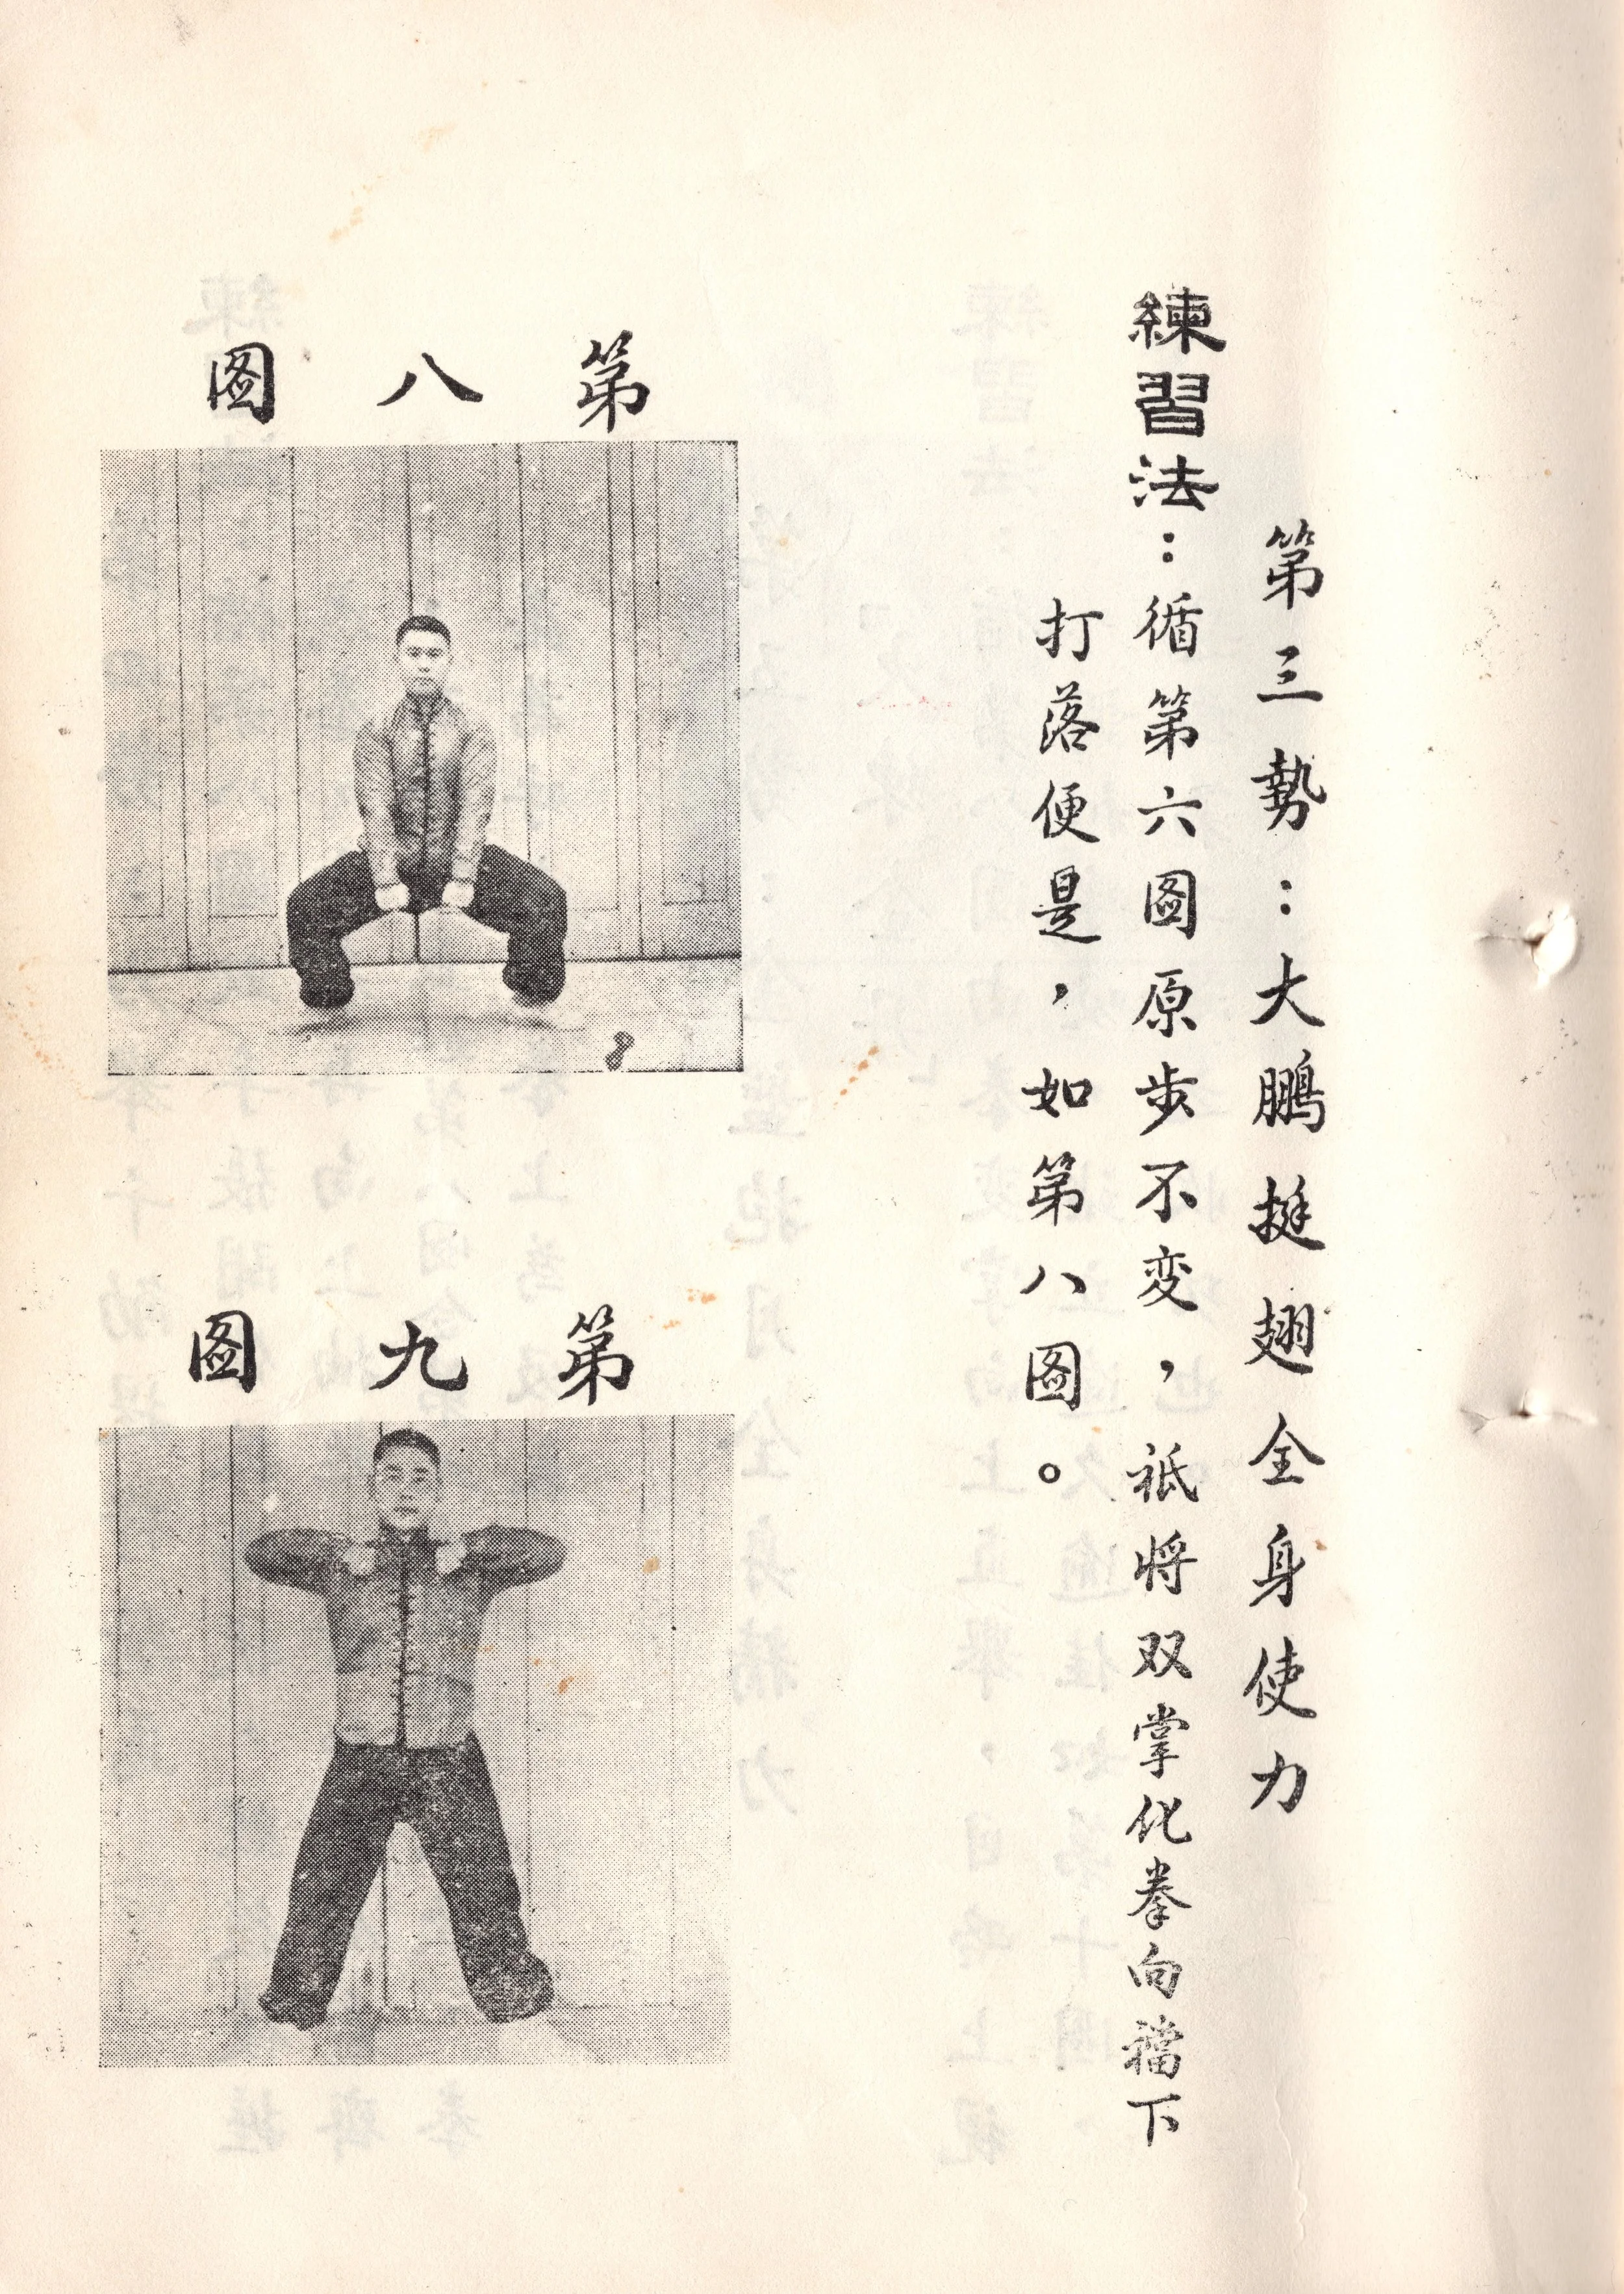 第三勢：大鵬挺翅全身使力
練習法：循第六圖原步不变，祇将双掌化拳向襠下
打落便是，如第八圖。
第八图
第九图